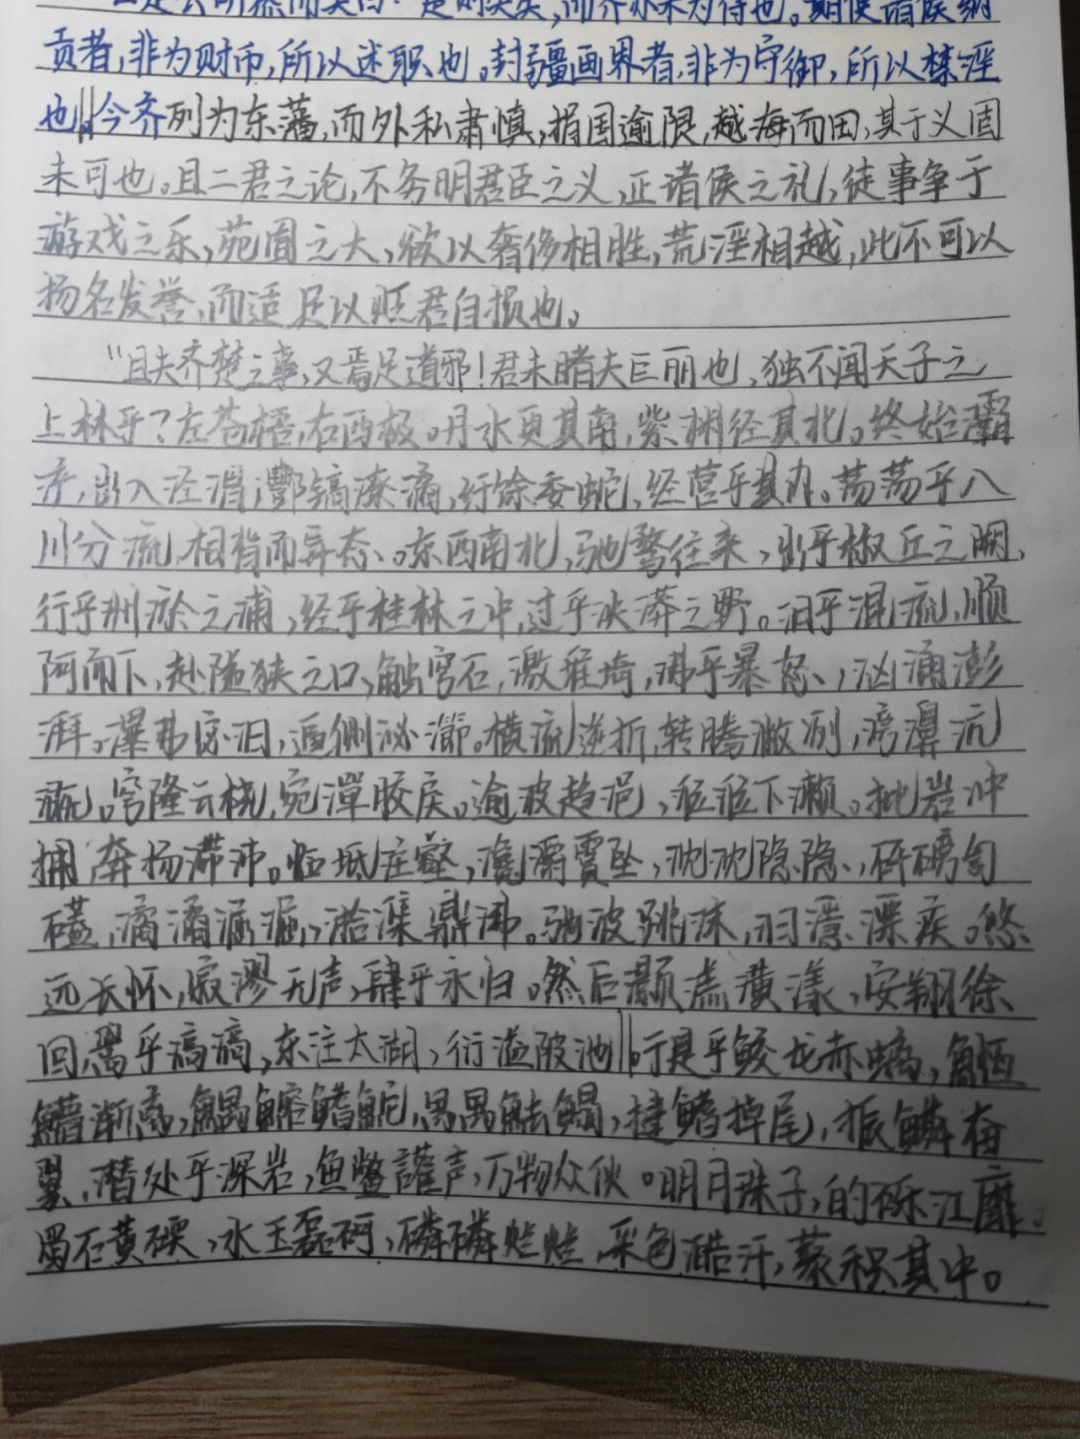 亡是公听然而笑曰：楚则失矣，而齐亦未为得也。夫使诸侯纳
贡者，非为财币，所以述职也。封疆画界者，非为守御，所以禁淫
也。今齐列为东藩，而外私肃慎，捐国逾限，越海而田，其于义固
未可也。且二君之论，不务明君臣之义，正诸侯之礼，徒事争于
游戏之乐，苑囿之大，欲以奢侈相胜，荒淫相越，此不可以
扬名发誉，而适足以贬君自损也。
“且夫齐楚之事，又焉足道邪！君未睹夫巨丽也，独不闻天子之
上林乎？左苍梧，右西极。丹水更其南，紫渊径其北。终始灞
浐，出入泾渭，酆镐潦潏，纡馀委蛇，经营乎其内。荡荡乎八
川分流，相背而异态。东西南北，驰骛往来，出乎椒丘之阙，
行乎洲淤之浦，经乎桂林之中，过乎泱漭之野。汩乎混流，顺
阿而下，赴隘狭之口，触穹石，激堆埼，沸乎暴怒，汹涌澎
湃。滭弗宓汩，逼侧泌瀄。横流逆折，转腾潎冽，滂濞沆
溉。穹隆云桡，宛潬胶戾。逾波趋浥，涖涖下濑。批岩冲
拥，奔扬滞沛。临坻注壑，瀺灂霣坠，沈沈隐隐，砰磅訇
礚，潏潏淈淈，湁潗鼎沸。驰波跳沫，汩㶁漂疾。悠
远长怀，寂漻无声，肆乎永归。然后灏溔潢漾，安翔徐
回，翯乎滈滈，东注太湖，衍溢陂池。于是乎鲛龙赤螭，䱍䲛
渐离，鰅鳙鳍鮀，禺禺魼鳎，揵鳍掉尾，振鳞奋
翼，潜处乎深岩，鱼鳖讙声，万物众伙。明月珠子，的砾江靡。
蜀石黄碝，水玉磊砢，磷磷烂烂，采色澔汗，藂积其中。